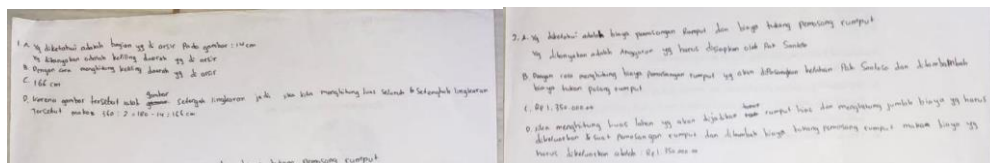 1. A. Yg diketahui adalah bagian yg di arsir pada gambar : 14 cm
Yg ditanyakan adalah keliling daerah yg di arsir
B. Dengan cara menghitung keliling daerah yg di arsir
C. 166 cm
D. Karena gambar tersebut adalah gambar setengah lingkaran jadi jika kita menghitung luas seluruh setengah lingkaran
tersebut maka 360 : 2 = 180 - 14 = 166 cm
pemasang rumput
2. A. Yg diketahui adalah biaya pemasangan Rumput dan biaya tukang pemasang rumput
Yg ditanyakan adalah Anggaran yg harus disiapkan oleh Pak Santoso
B. Dengan cara menghitung biaya pemasangan rumput yg akan dikebun Pak Santoso dan
biaya tukang rumput
C. Rp 1.750.000.00
D. menghitung luas lahan yg akan dijadikan rumput hias dan menghitung jumlah biaya yg harus
dikeluarkan saat pemasangan rumput dan ditambah biaya tukang pemasang rumput maka biaya yg
harus dikeluarkan adalah : Rp 1.750.000.00